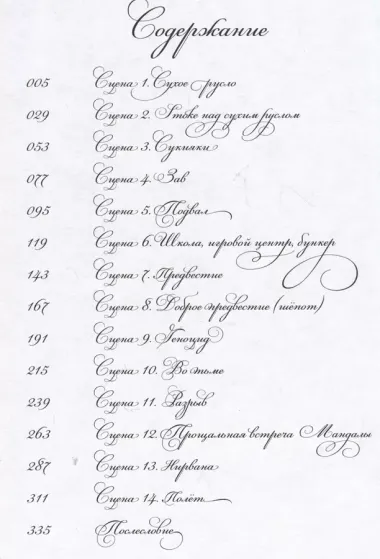 Содержание
005 Сцена 1. Сухое русло
029 Сцена 2. Ютоке над сухим руслом
053 Сцена 3. Сукияки
077 Сцена 4. Зов
095 Сцена 5. Подвал
119 Сцена 6. Школа, игровой центр, бункер
143 Сцена 7. Предвестие
167 Сцена 8. Доброе предвестие (шёпот)
191 Сцена 9. Геноцид
215 Сцена 10. Во тьме
239 Сцена 11. Разрыв
263 Сцена 12. Прощальная встреча Мандалы
287 Сцена 13. Нирвана
311 Сцена 14. Полёт
335 Послесловие